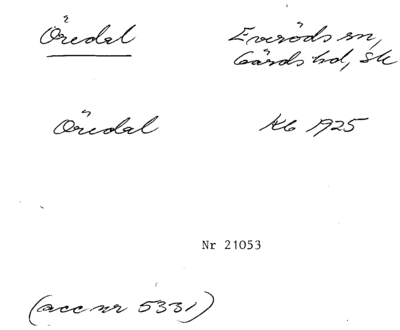 Öredal
Everöds sn,
Gärds hd, Sk
Öredal
Kb 1925
Nr 21053
(acc nr 5331)